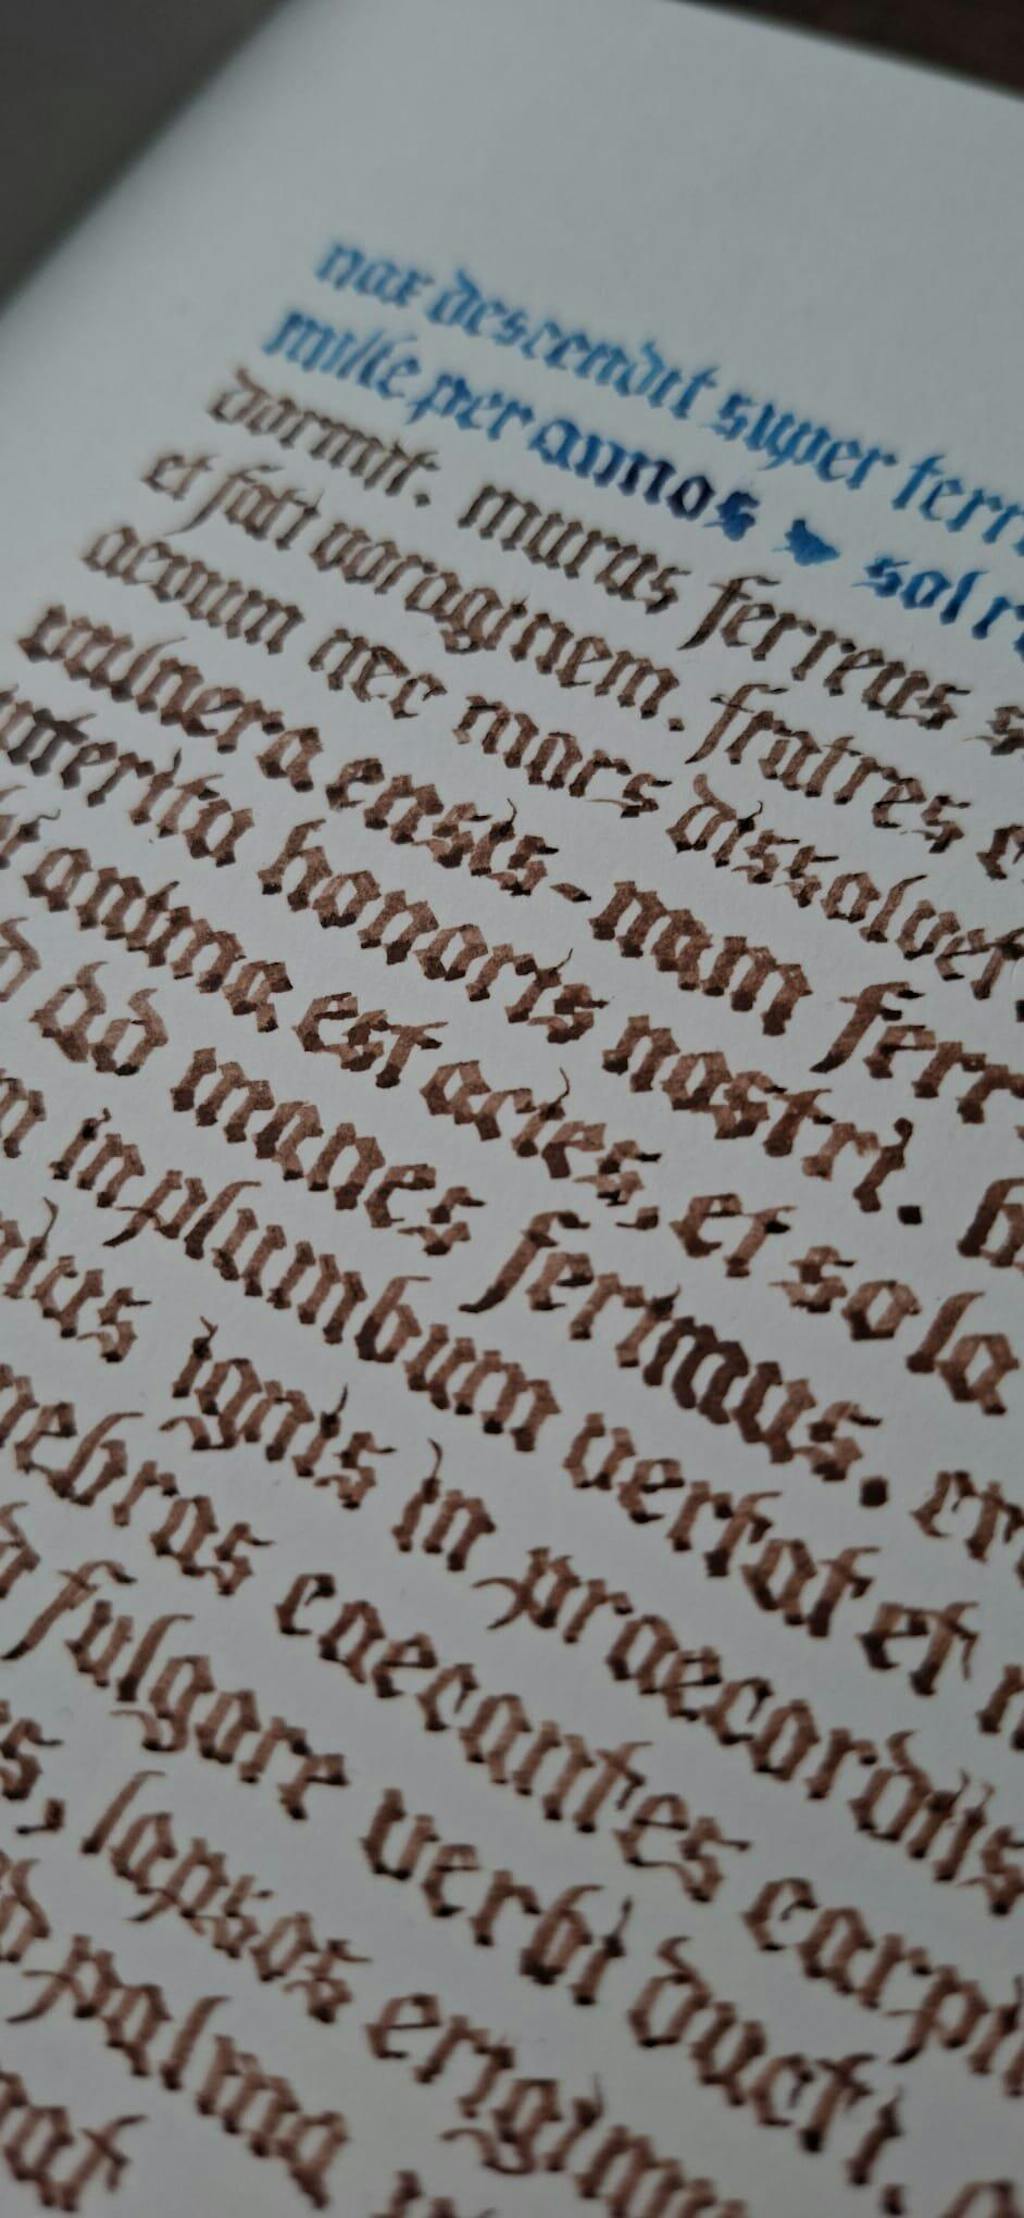 nox descendit super terr
mille per annos sol r
dormit. murus ferreus s
et fati voraginem. fratres
aevum nec mors dissolvet
vulnera ensis - nam ferr
interita honoris nostri.
anima est acies, et sola
ad manes ferimus.
in plumbum vertat et
ignis in praecordiis
nebras caecantes carpi
fulgore verbi ducti.
lapsos erigimus
palma